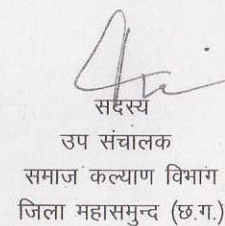 सदस्य
उप संचालक
समाज कल्याण विभाग
जिला महासमुन्द (छ.ग.)